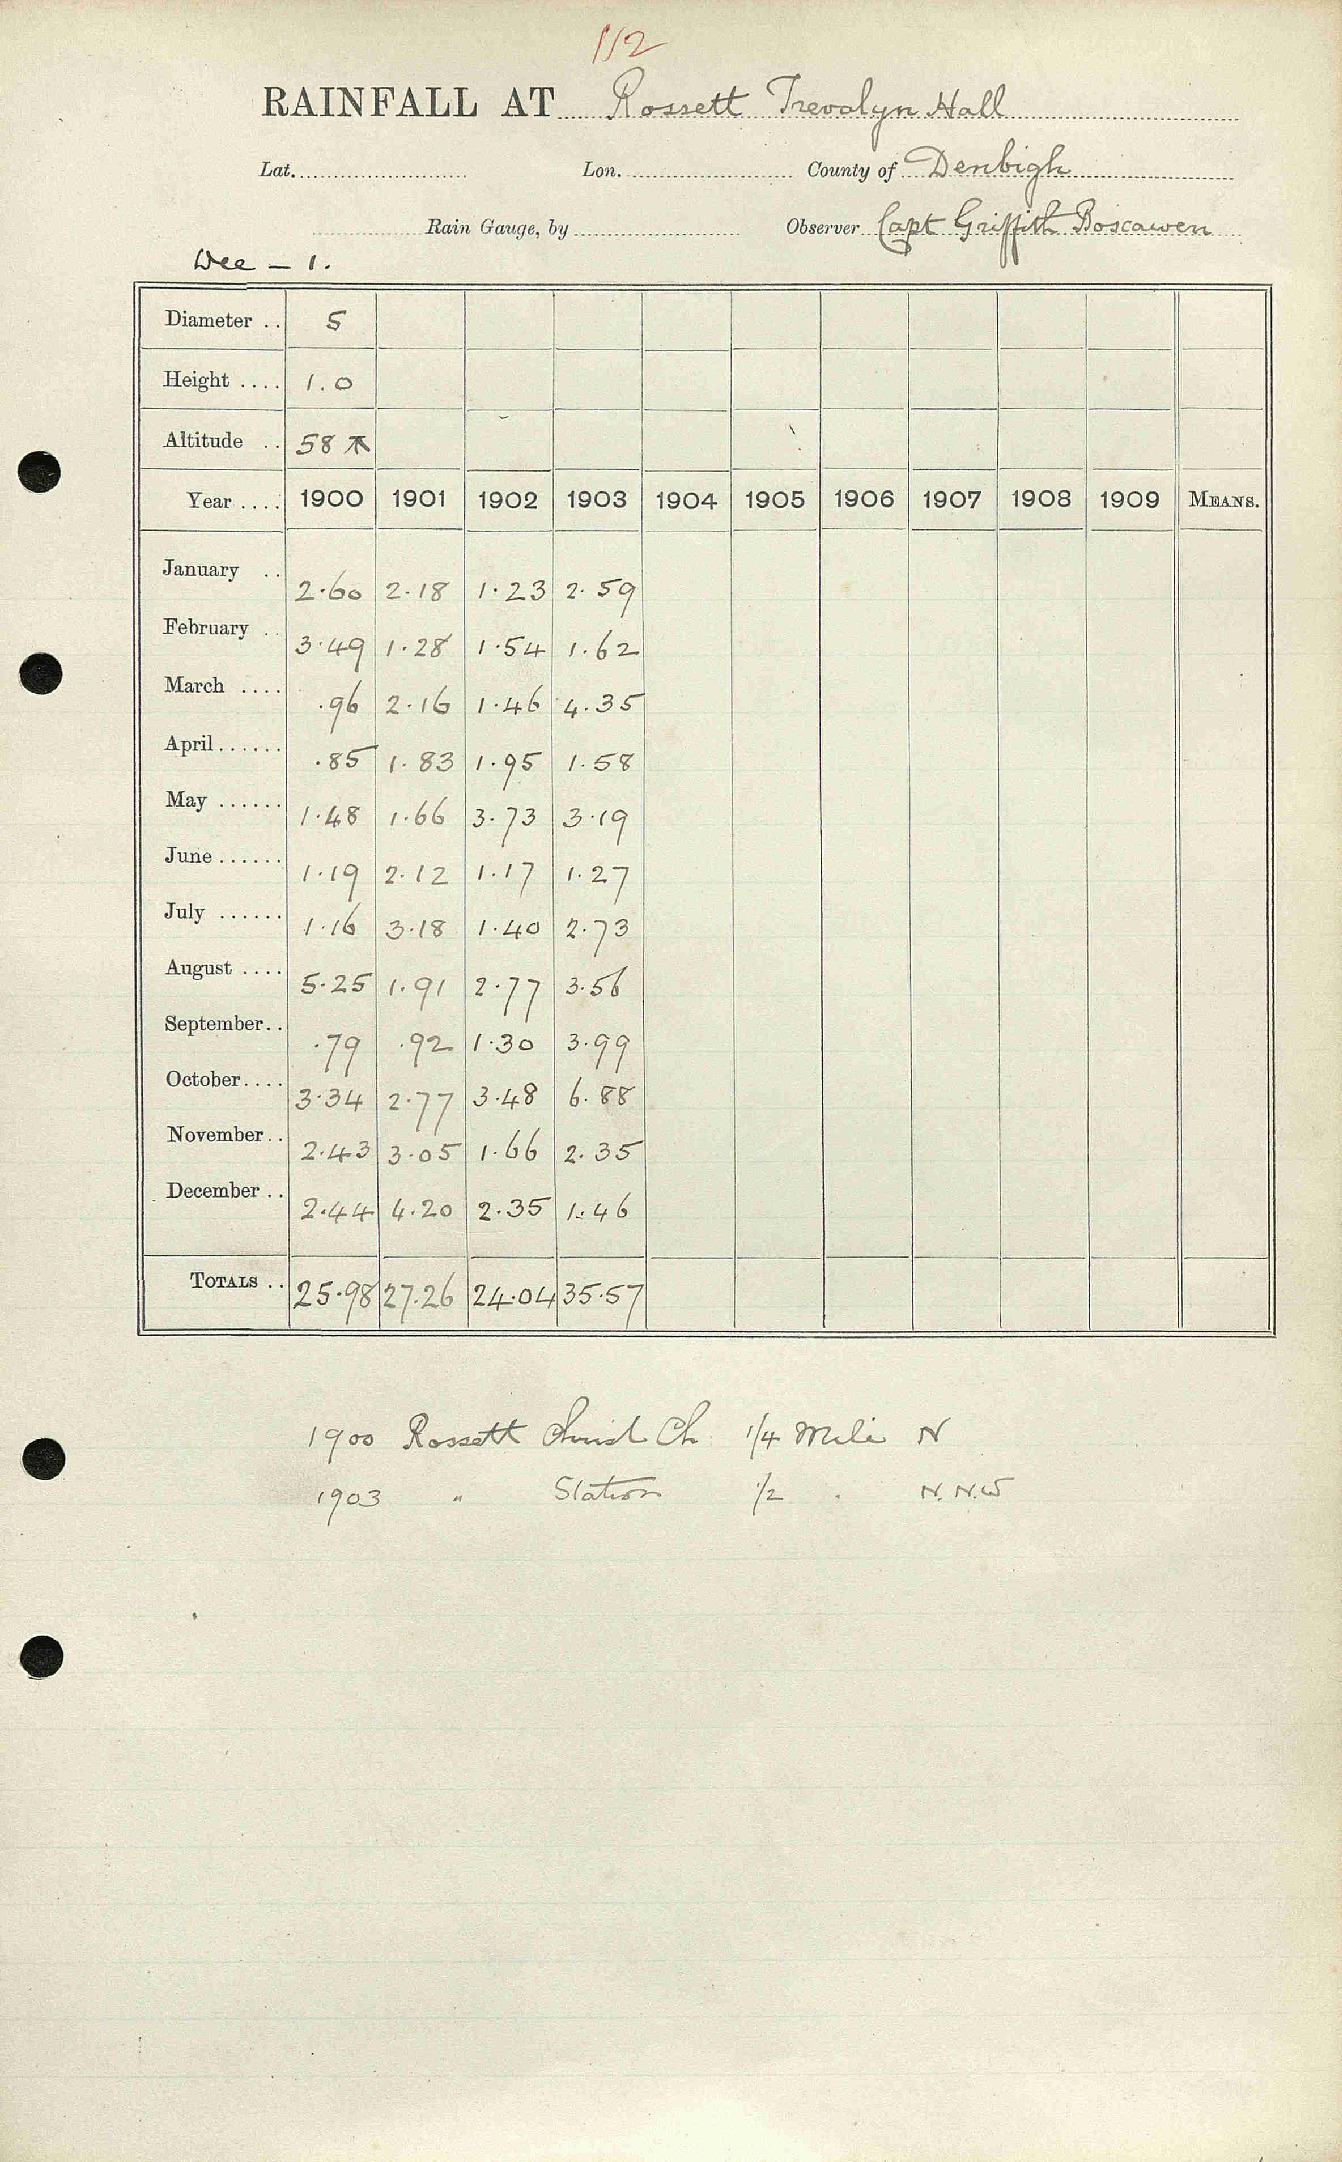 112
RAINFALL AT Rossett Trevalyn Hall
Lat. Lon. County of Denbigh
Rain Gauge, by Observer Capt Griffith Boscawen
Dee – 1.
Diameter .. 5
Height .... 1.0
Altitude .. 58
Year .... 1900 1901 1902 1903 1904 1905 1906 1907 1908 1909 MEANS.
January .. 2.60 2.18 1.23 2.59
February .. 3.49 1.28 1.54 1.62
March .... .96 2.16 1.46 4.35
April...... .85 1.83 1.95 1.58
May ...... 1.48 1.66 3.73 3.19
June ...... 1.19 2.12 1.17 1.27
July ...... 1.16 3.18 1.40 2.73
August .... 5.25 1.91 2.77 3.56
September.. .79 .92 1.30 3.99
October.... 3.34 2.77 3.48 6.88
November.. 2.43 3.05 1.66 2.35
December .. 2.44 4.20 2.35 1.46
TOTALS .. 25.98 27.26 24.04 35.57
1900 Rossett Christ Ch 1/4 Mile N
1903 " Station 1/2 . N.N.W